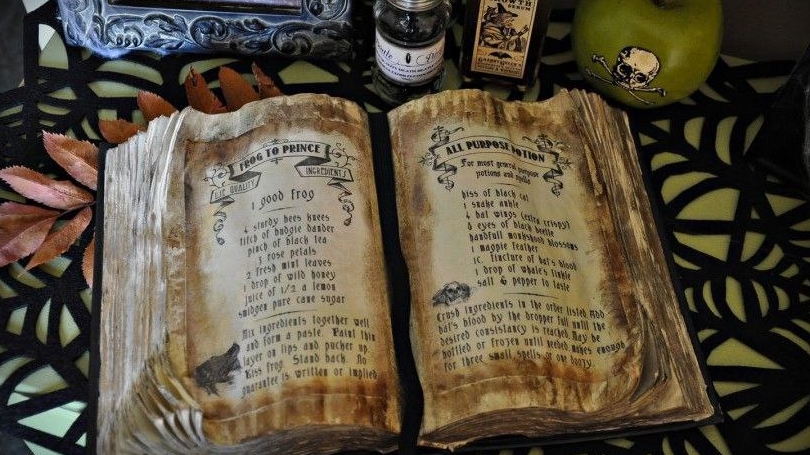 FROG TO PRINCE
INGREDIENTS
1 good frog
4 sturdy bees knees
titch of budgie dander
pinch of black tea
3 rose petals
2 fresh mint leaves
1 drop of wild honey
juice of 1/2 a lemon
smidgen pure cane sugar
Mix ingredients together well
and form a paste. Paint thin
layer on lips and pucher up.
Kiss frog. Stand back. No
guarantee is written or implied
ALL PURPOSE POTION
For most general purpose
potions and spells
kiss of black cat
1 snake ankle
4 bat wings (extra crispy)
8 eyes of black beetle
handfull monkshood blossoms
1 magpie feather
1C. tincture of bat's blood
1 drop of whale's tinkle
salt & pepper to taste
Crush ingredients in the order listed ADD
bat's blood by the dropper full until the
desired consistancy is reached. May be
bottled or frozen until needed. makes enough
for three small spells or one doozy.